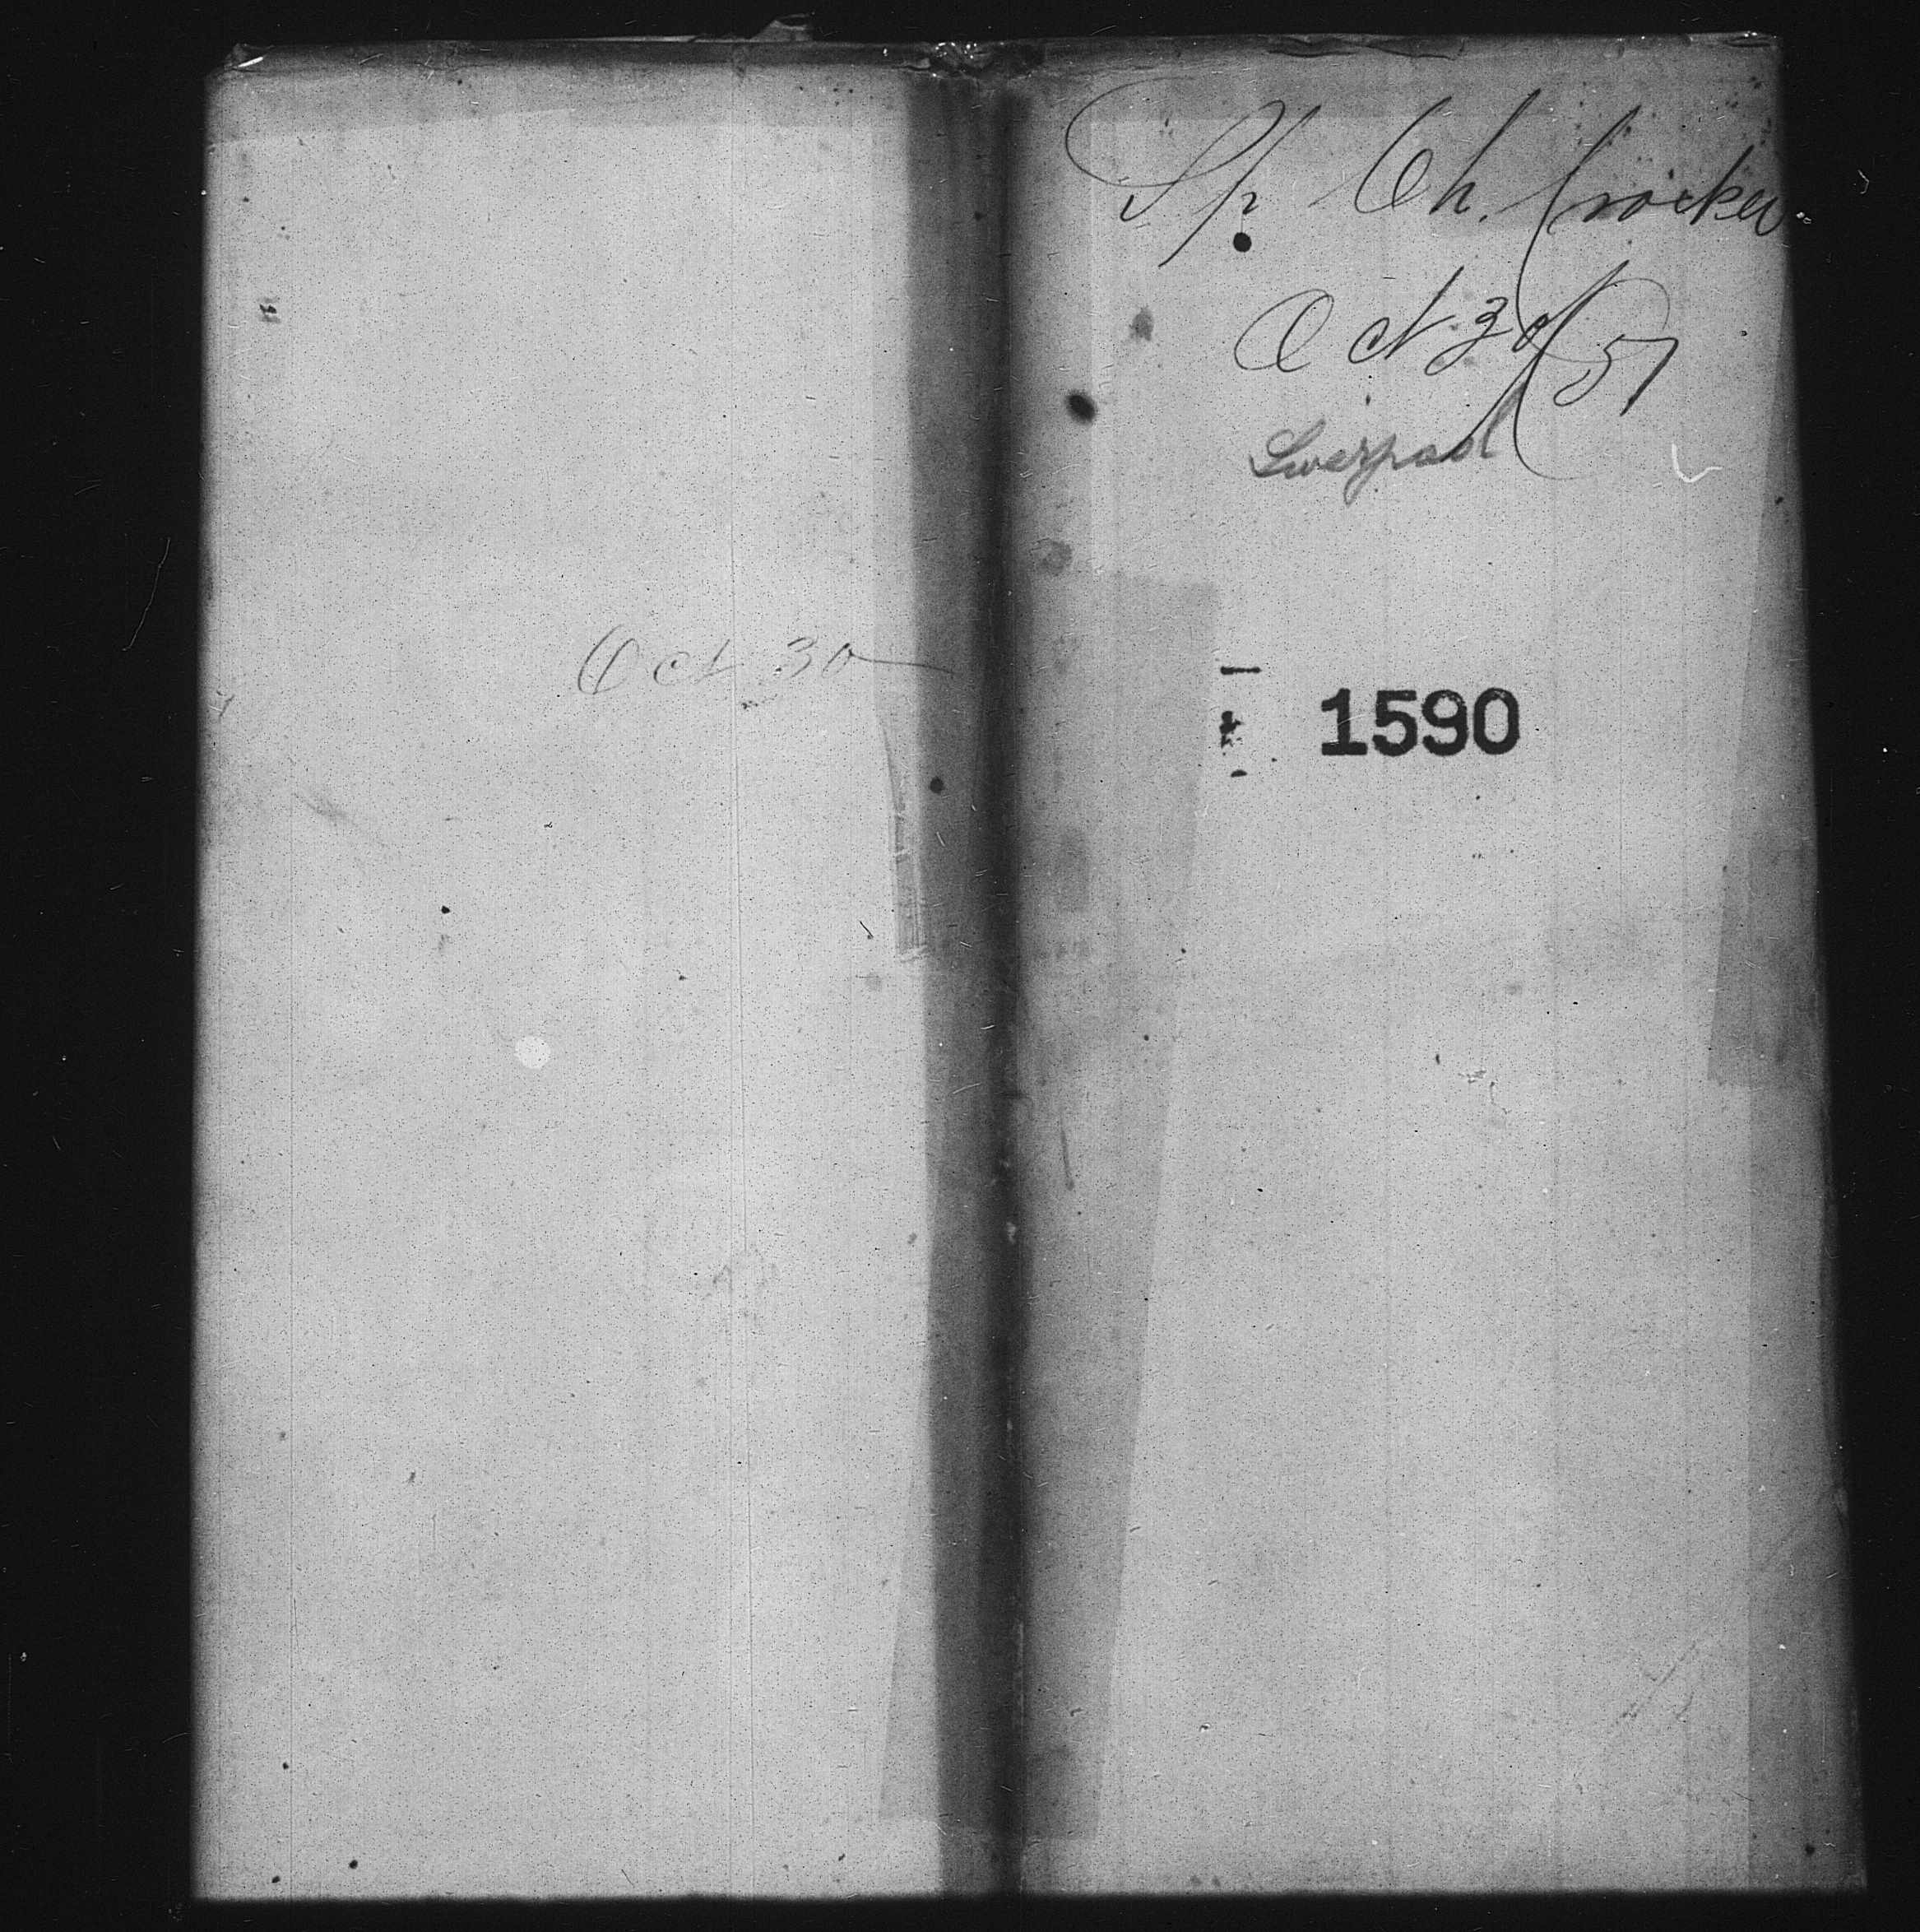 Oct 30
Sp Ch. Crocker
Oct 30/57
Liverpool
1590